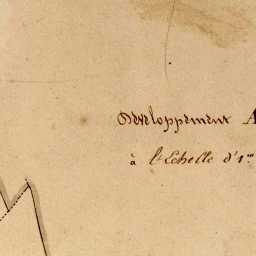 Developpement A
à l'Echelle d'1m